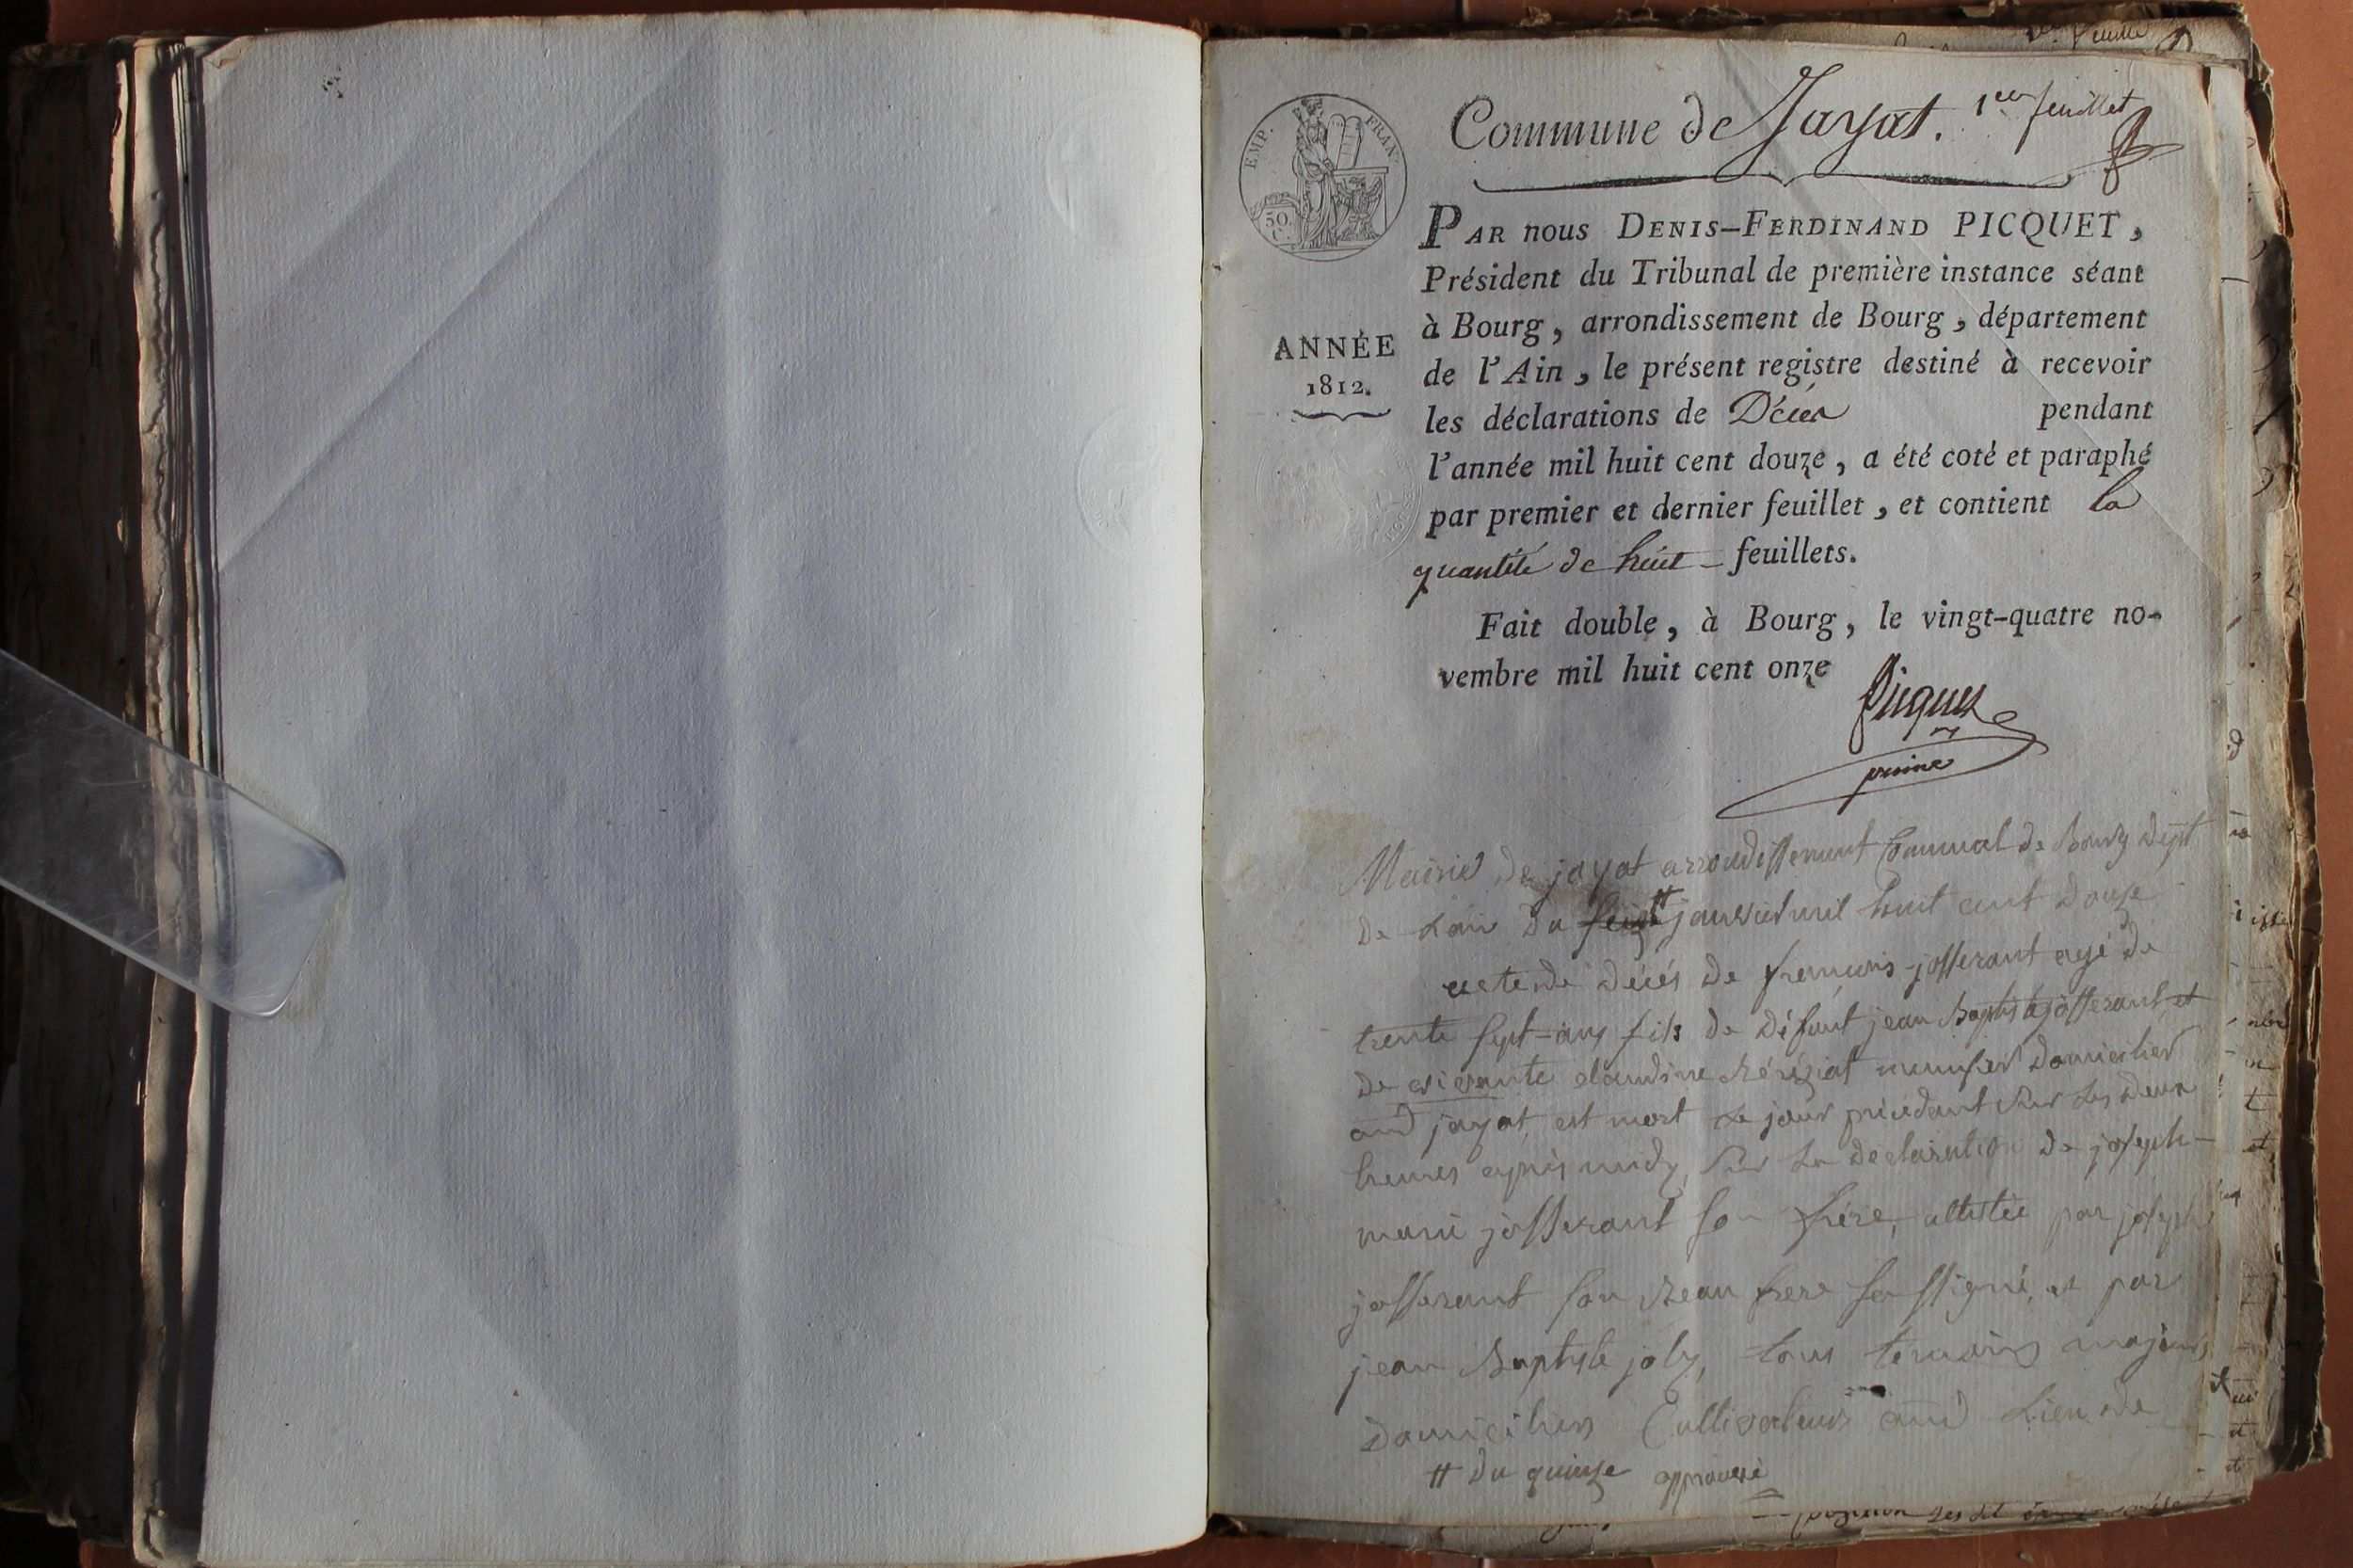 Commune de Jayat. 1er feuillet
EMP. FRAN.
50 C.
ANNÉE
1812.
PAR nous DENIS-FERDINAND PICQUET,
Président du Tribunal de première instance séant
à Bourg, arrondissement de Bourg, département
de l'Ain, le présent registre destiné à recevoir
les déclarations de Décès pendant
l'année mil huit cent douze, a été coté et paraphé
par premier et dernier feuillet, et contient la
quantité de huit feuillets.
Fait double, à Bourg, le vingt-quatre no-
vembre mil huit cent onze
Picquet
Mairie de jayat arrondissement Communal de Bourg Dept
De Lain Du # janvier mil huit cent douze
acte de décés de francois josserant agé de
trente sept ans fils de défunt jean Baptiste josserant et
de vivante claudine meunier domicilier
aud jayat, est mort le jour précédant sur les deux
heures aprés midy, sur la déclaration de joseph
marie josserant son frére, attestée par joseph
josserant son beau frere soussigné, et par
jean Baptiste joly, tous temoins majeurs
Domiciliers Cultivateurs aud Lieu de
# du quinze approuvé